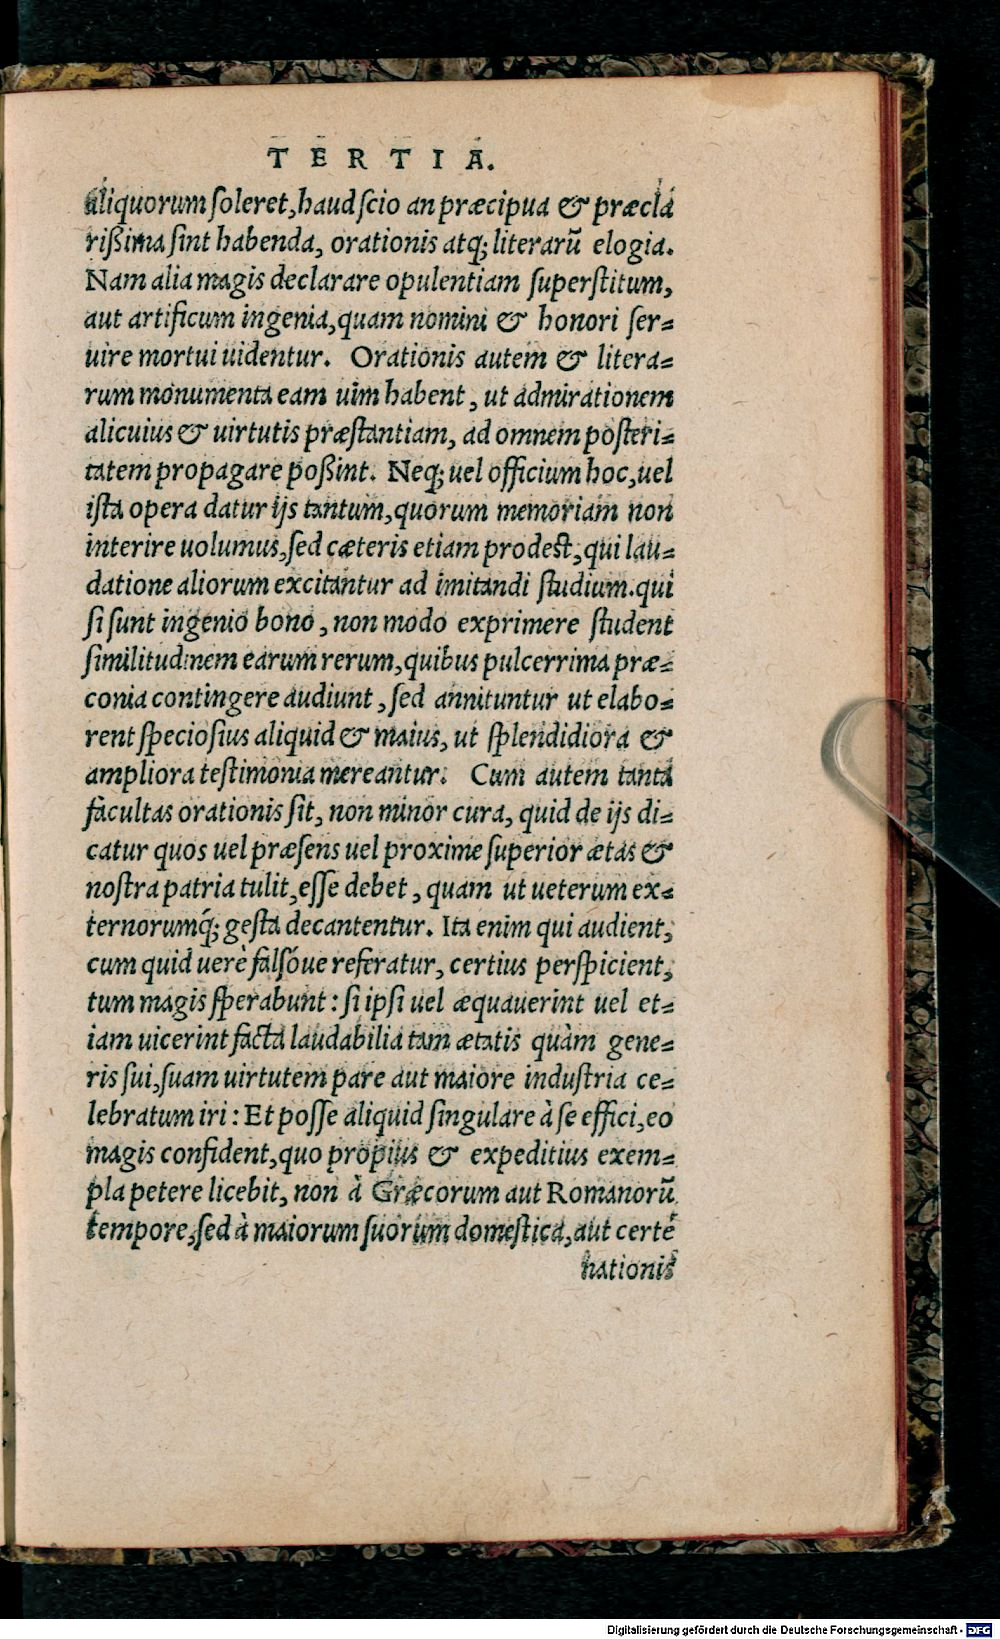 TERTIA.
aliquorum soleret, haud scio an præcipua & præcla
rißima sint habenda, orationis atq; literarū elogia.
Nam alia magis declarare opulentiam superstitum,
aut artificum ingenia, quam nomini & honori ser=
uire mortui uidentur. Orationis autem & litera=
rum monumenta eam uim habent, ut admirationem
alicuius & uirtutis præstantiam, ad omnem posteri=
tatem propagare poßint. Neq; uel officium hoc, uel
ista opera datur ijs tantum, quorum memoriam non
interire uolumus, sed cæteris etiam prodest, qui lau=
datione aliorum excitantur ad imitandi studium. qui
si sunt ingenio bono, non modo exprimere student
similitudinem earum rerum, quibus pulcerrima præ=
conia contingere audiunt, sed annituntur ut elabo=
rent speciosius aliquid & maius, ut splendidiora &
ampliora testimonia mereantur. Cum autem tanta
facultas orationis sit, non minor cura, quid de ijs di=
catur quos uel præsens uel proxime superior ætas &
nostra patria tulit, esse debet, quam ut ueterum ex=
ternorumq́; gesta decantentur. Ita enim qui audient,
cum quid uerè falsóue referatur, certius perspicient,
tum magis sperabunt: si ipsi uel æquauerint uel et=
iam uicerint facta laudabilia tam ætatis quàm gene=
ris sui, suam uirtutem pare aut maiore industria ce=
lebratum iri: Et posse aliquid singulare à se effici, eo
magis confident, quo propius & expeditius exem=
pla petere licebit, non à Græcorum aut Romanorū
tempore, sed à maiorum suorum domestica, aut certe
nationis
Digitalisierung gefördert durch die Deutsche Forschungsgemeinschaft - DFG